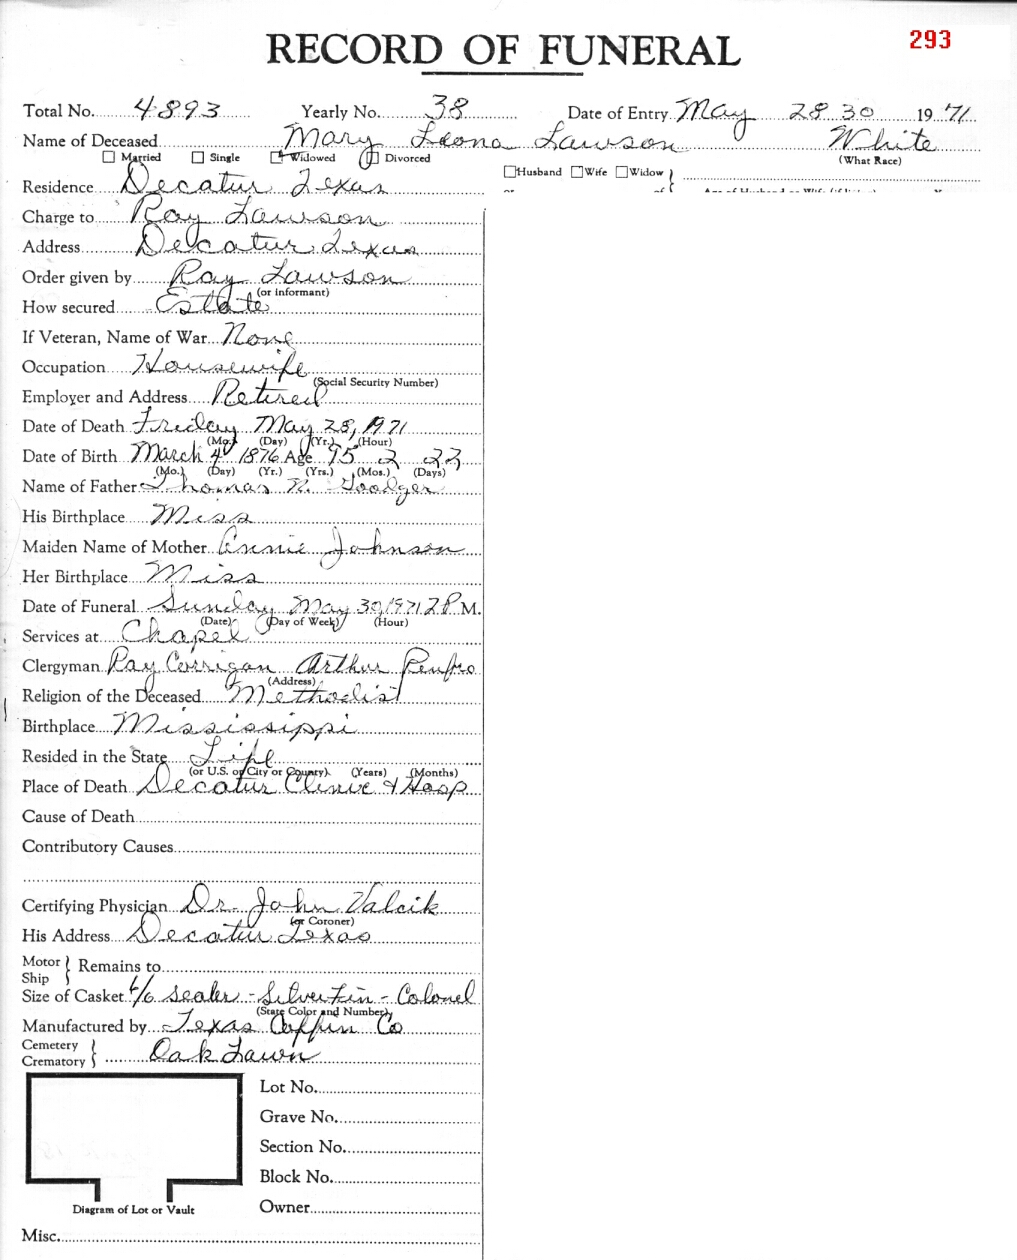 293
RECORD OF FUNERAL
Total No. 4893 Yearly No. 38 Date of Entry May 28 30 19 71
Name of Deceased Mary Leona Lawson White
☐ Married ☐ Single ☐ Widowed ☐ Divorced (What Race)
☐Husband ☐Wife ☐Widow
Residence Decatur Texas
Charge to Ray Lawson
Address Decatur Texas
Order given by Ray Lawson
(or informant)
How secured Estate
If Veteran, Name of War None
Occupation Housewife
(Social Security Number)
Employer and Address Retired
Date of Death Friday May 28, 1971
(Mo.) (Day) (Yr.) (Hour)
Date of Birth March 4 1876 Age 95 2 22
(Mo.) (Day) (Yr.) (Yrs.) (Mos.) (Days)
Name of Father Thomas N.
His Birthplace Miss
Maiden Name of Mother Annie Johnson
Her Birthplace Miss
Date of Funeral Sunday May 30, 1971 2 P M.
(Date) (Day of Week) (Hour)
Services at Chapel
Clergyman Ray Corrigan Arthur Renfro
(Address)
Religion of the Deceased Methodist
Birthplace Mississippi
Resided in the State Life
(or U.S. or City or County) (Years) (Months)
Place of Death Decatur Clinic & Hosp
Cause of Death
Contributory Causes
Certifying Physician Dr. John Valcik
(or Coroner)
His Address Decatur Texas
Motor
Ship } Remains to
Size of Casket 6/6 sealer - Silver - Colonel
(State Color and Number)
Manufactured by Texas Coffin Co
Cemetery
Crematory } Oak Lawn
Lot No.
Grave No.
Section No.
Block No.
Owner
Diagram of Lot or Vault
Misc.